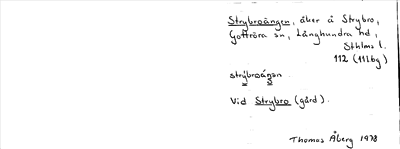 Strybroängen, åker å Strybro,
Gottröra sn, Långhundra hd,
Sthlms l.
112 (111bg)
strýbroäŋən
Vid Strybro (gård).
Thomas Åberg 1978